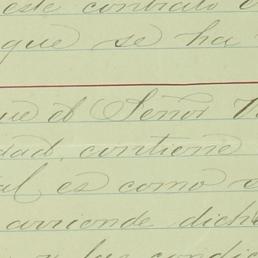 este contrato
que se ha
que el Señor
dad, contiene
al es como
arriende dich
y las condic